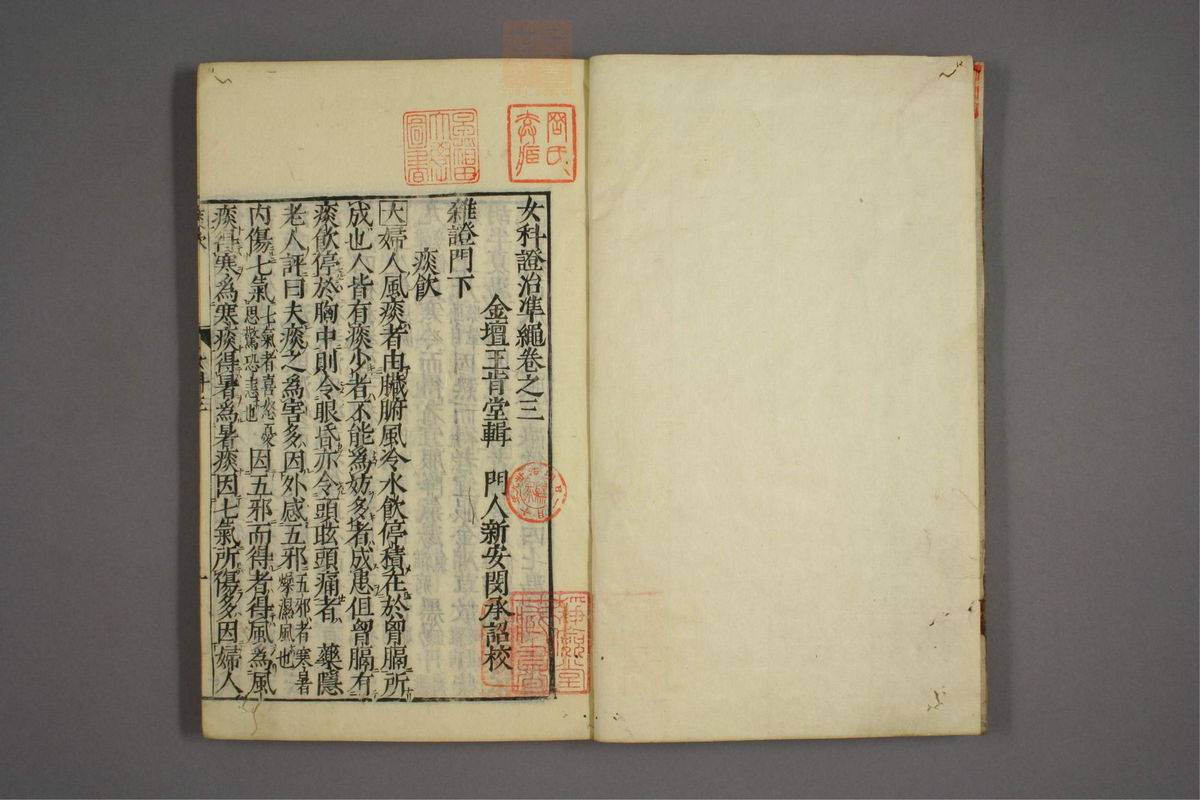 女科證治準繩卷之三
金壇王肯堂輯 門人新安閔承詔校
雜證門下
痰飲
大婦人風痰者由臟腑風冷水飲停積在於胷膈所
成也人皆有痰少者不能為妨多者成患但胷膈有
痰飲停於胸中則令眼昏亦令頭眩頭痛者 藥隱
老人評曰夫痰之為害多因外感五邪五邪者寒暑燥濕風也
内傷七氣七氣者喜怒憂思驚恐恚也因五邪而得者得風為風
痰得寒為寒痰得暑為暑痰因七氣所傷多因婦人
早稻田大學圖書